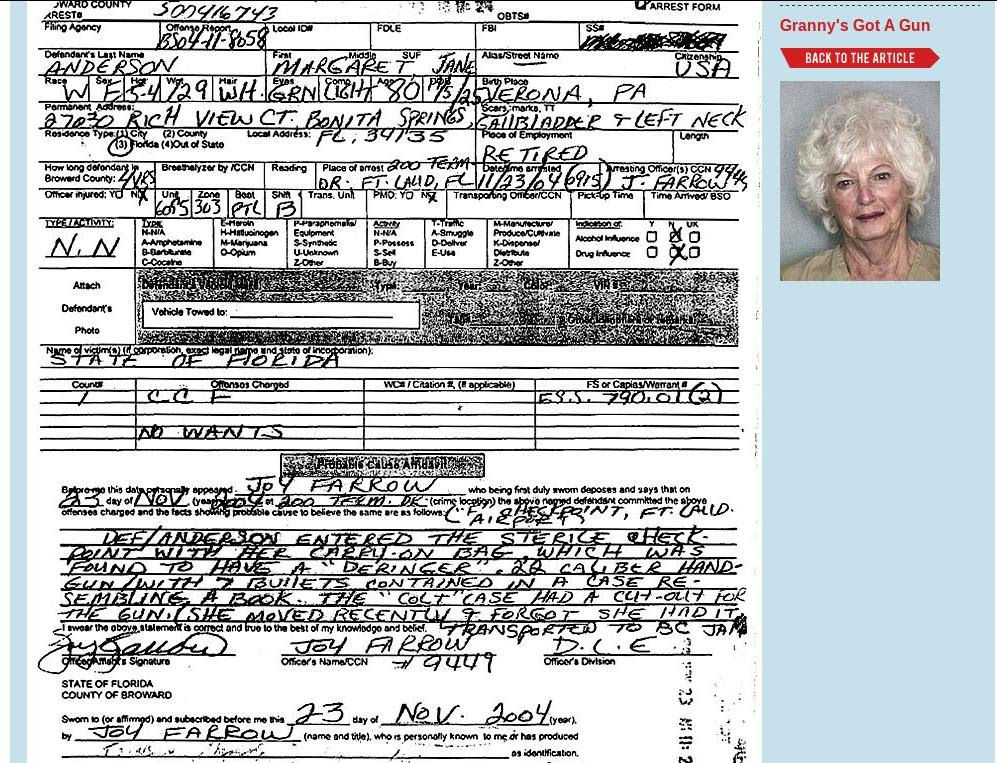 OWARD COUNTY
ARREST# S00416743
OBTS#
ARREST FORM
Filing Agency
Offense Report
BS04-11-8058
Local ID#
FDLE
FBI
SS#
Defendant's Last Name
ANDERSON
First
MARGARET
Middle
JANE
SUF
Alias/Street Name
Citizenship
USA
Race W
Sex F
Hgt 5-4
Wgt 129
Hair WH.
Eyes GRN
Comp LIGHT
Age 80
DOB
Birth Place
VERONA, PA
Permanent Address:
27030 RICH VIEW CT. BONITA SPRINGS,
FL. 34135
Scars, marks, TT
GALLBLADDER & LEFT NECK
Residence Type: (1) City (2) County
(3) Florida (4) Out of State
Local Address:
Place of Employment
RETIRED
Length
How long defendant in
Broward County: 4 YRS
Breathalyzer by /CCN
Reading
Place of arrest 200 TERM
DR. FT. LAUD, FL
Date/time arrested
11/23/04 (0915)
Arresting Officer(s) CCN 9449
J. FARROW
Officer injured: Y☐ N☒
Unit
Zone 303
Beat PTL
Shift B
Trans. Unit
PMD: Y☐ N☒
Transporting Officer/CCN
Pick-up Time
Time Arrived/ BSO
TYPE / ACTIVITY:
N.N
Type:
N-N/A
A-Amphetamine
B-Barbiturate
C-Cocaine
E-Heroin
H-Hallucinogen
M-Marijuana
O-Opium
P-Paraphernalia/
Equipment
S-Synthetic
U-Unknown
Z-Other
Activity
N-N/A
P-Possess
S-Sell
B-Buy
T-Traffic
A-Smuggle
D-Deliver
E-Use
M-Manufacture/
Produce/Cultivate
K-Dispense/
Distribute
Z-Other
Indication of: Y N UK
Alcohol Influence
Drug Influence
Attach
Defendant's
Photo
Defendant's Vehicle Make Type: Year: Color: VIN #
Vehicle Towed to:
Name of victim(s) (if corporation, exact legal name and state of incorporation):
STATE OF FLORIDA
Count#
Offenses Charged
WC# / Citation #, (if applicable)
FS or Capias/Warrant #
1
C C F
F.S.S. 790.01 (2)
NO WANTS
Probable Cause Affidavit
Before me this date personally appeared JOY FARROW who being first duly sworn deposes and says that on
23 day of NOV. (year) 2004 at 200 TERM. DR. (crime location) the above named defendant committed the above
offenses charged and the facts showing probable cause to believe the same are as follows: ("F" CHECKPOINT, FT. LAUD.
AIRPORT)
DEF/ANDERSON ENTERED THE STERILE CHECK-
POINT WITH HER CARRY-ON BAG, WHICH WAS
FOUND TO HAVE A "DERINGER" .22 CALIBER HAND-
GUN/WITH 7 BULLETS CONTAINED IN A CASE RE-
SEMBLING A BOOK. THE "COLT" CASE HAD A CUT-OUT FOR
THE GUN. (SHE MOVED RECENTLY & FORGOT SHE HAD IT.
I swear the above statement is correct and true to the best of my knowledge and belief. TRANSPORTED TO BC JAIL
JOY FARROW
# 9449
D.L.E.
Officer/Affiant's Signature
Officer's Name/CCN
Officer's Division
STATE OF FLORIDA
COUNTY OF BROWARD
Sworn to (or affirmed) and subscribed before me this 23 day of NOV. 2004 (year),
by JOY FARROW (name and title), who is personally known to me or has produced
as identification.
Granny's Got A Gun
BACK TO THE ARTICLE